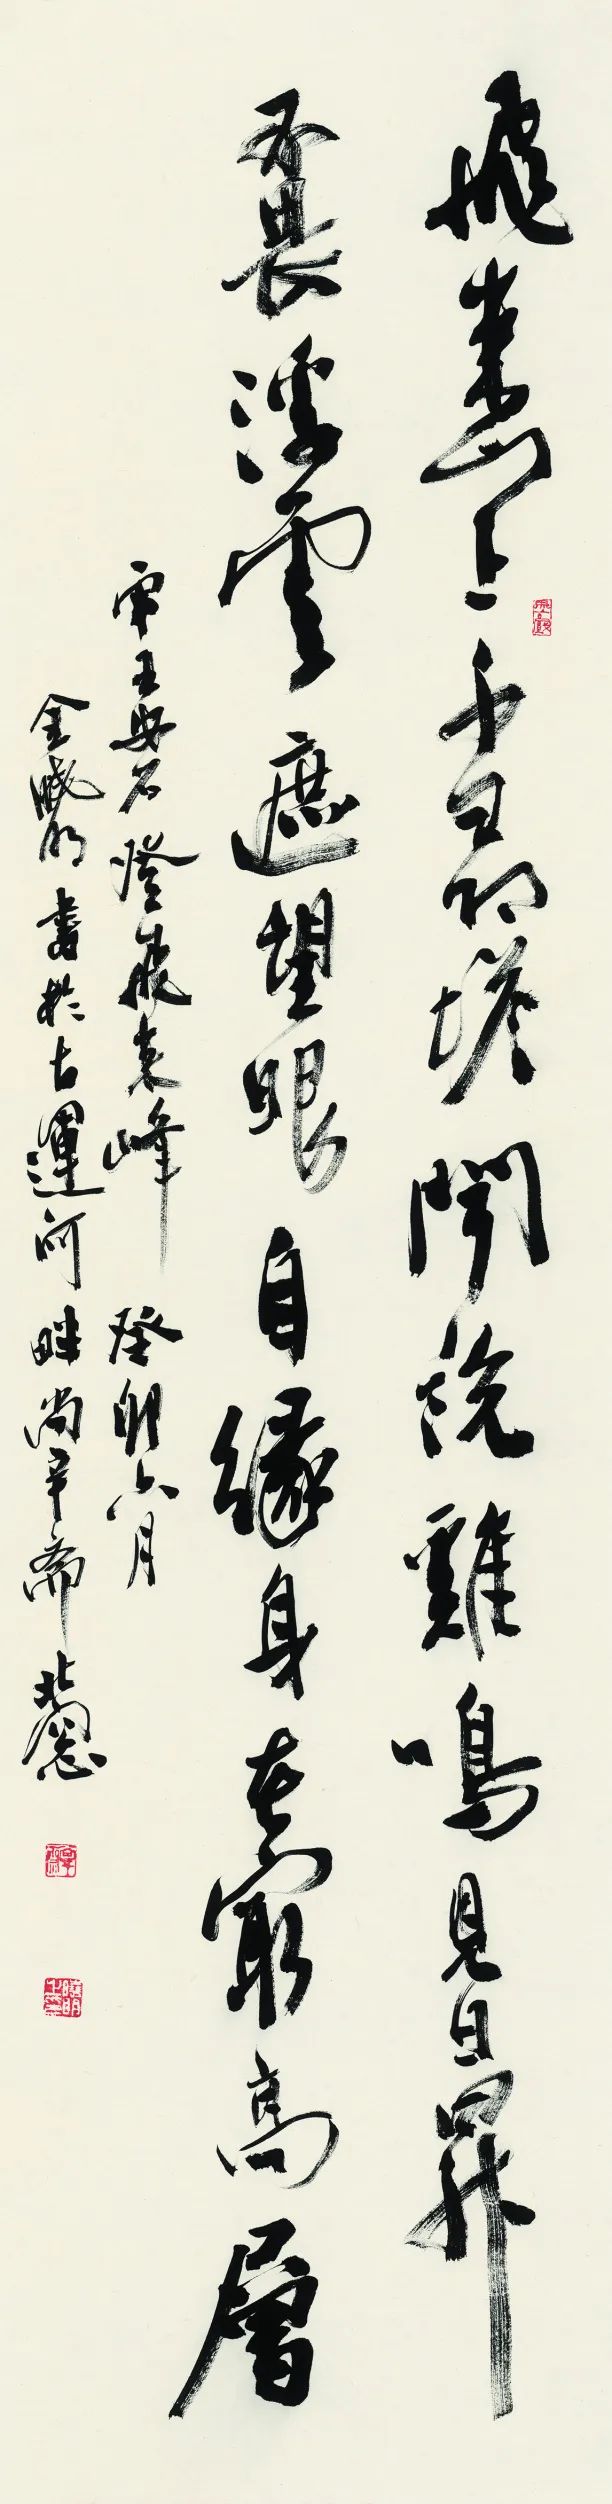 飛來山上千尋塔聞說雞鳴見日昇
不畏浮雲遮望眼自緣身在最高層
宋王安石登飛來峰 癸卯六月
金曉明書於古運河畔尚辛齋北窗